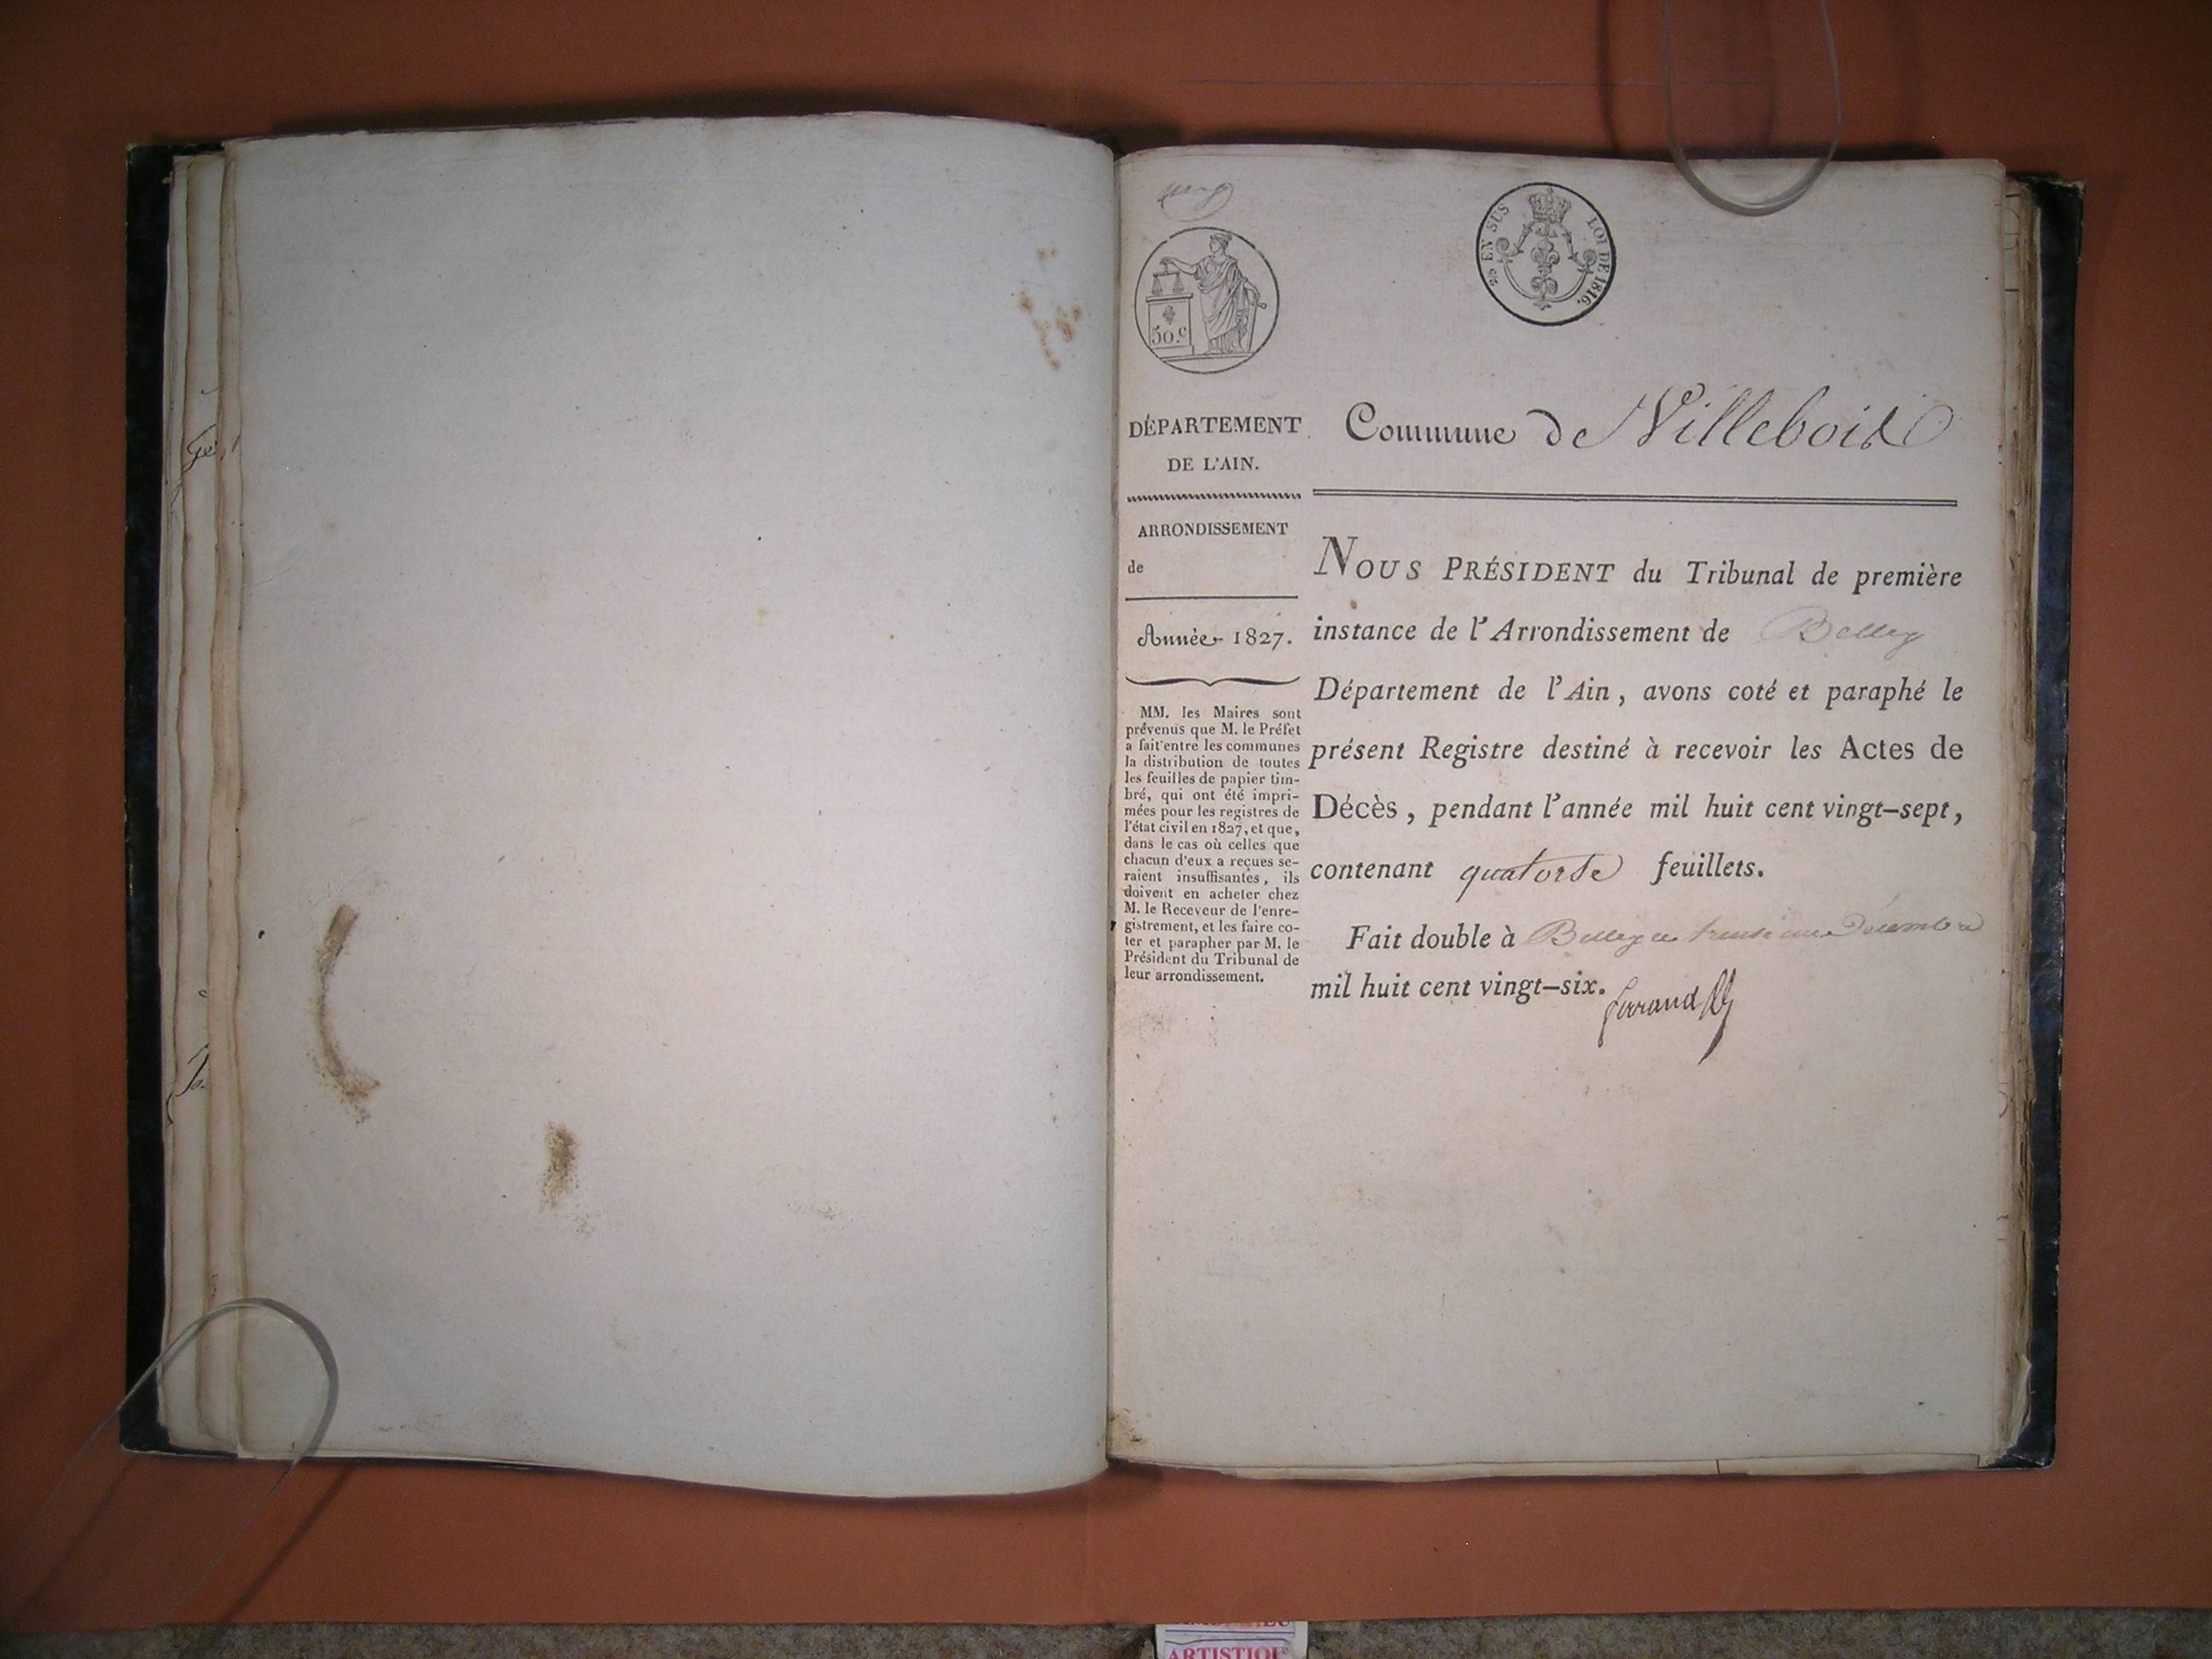 50.c
EN SUS LOI DE 1816.
DÉPARTEMENT
DE L'AIN.
ARRONDISSEMENT
de
Année 1827.
MM. les Maires sont
prévenus que M. le Préfet
a fait entre les communes
la distribution de toutes
les feuilles de papier tim-
bré, qui ont été impri-
mées pour les registres de
l'état civil en 1827, et que,
dans le cas où celles que
chacun d'eux a reçues se-
raient insuffisantes, ils
doivent en acheter chez
M. le Receveur de l'enre-
gistrement, et les faire co-
ter et parapher par M. le
Président du Tribunal de
leur arrondissement.
Commune de Villebois
NOUS PRÉSIDENT du Tribunal de première
instance de l'Arrondissement de Belley
Département de l'Ain, avons coté et paraphé le
présent Registre destiné à recevoir les Actes de
Décès, pendant l'année mil huit cent vingt-sept,
contenant quatorse feuillets.
Fait double à Belley ce trente une Décembre
mil huit cent vingt-six.
ARTISTIQU